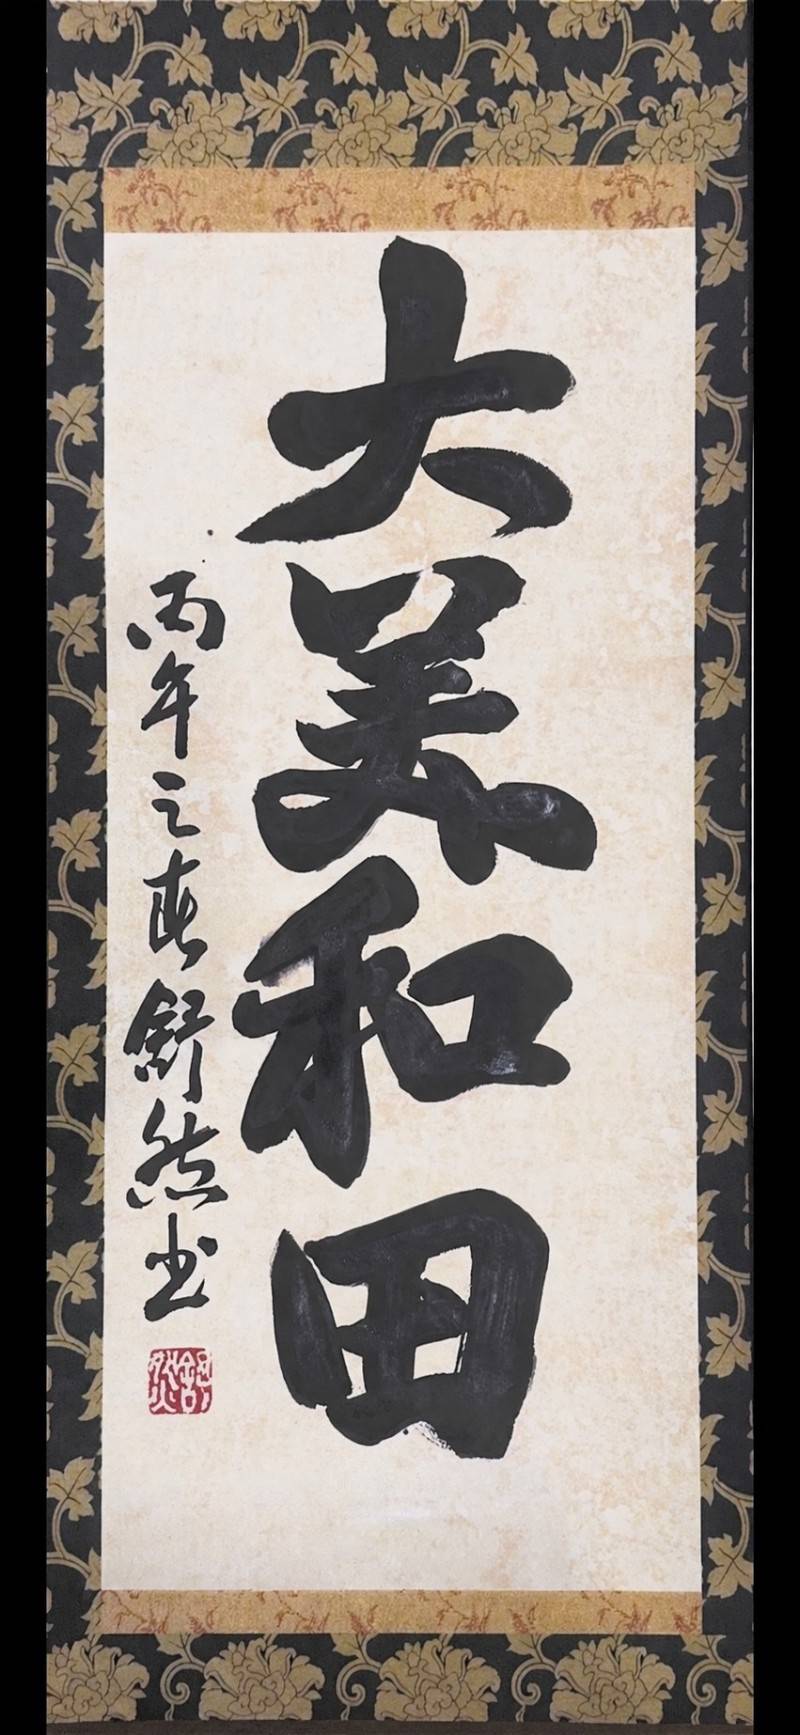 大美和田
丙午之春舒然书
舒然